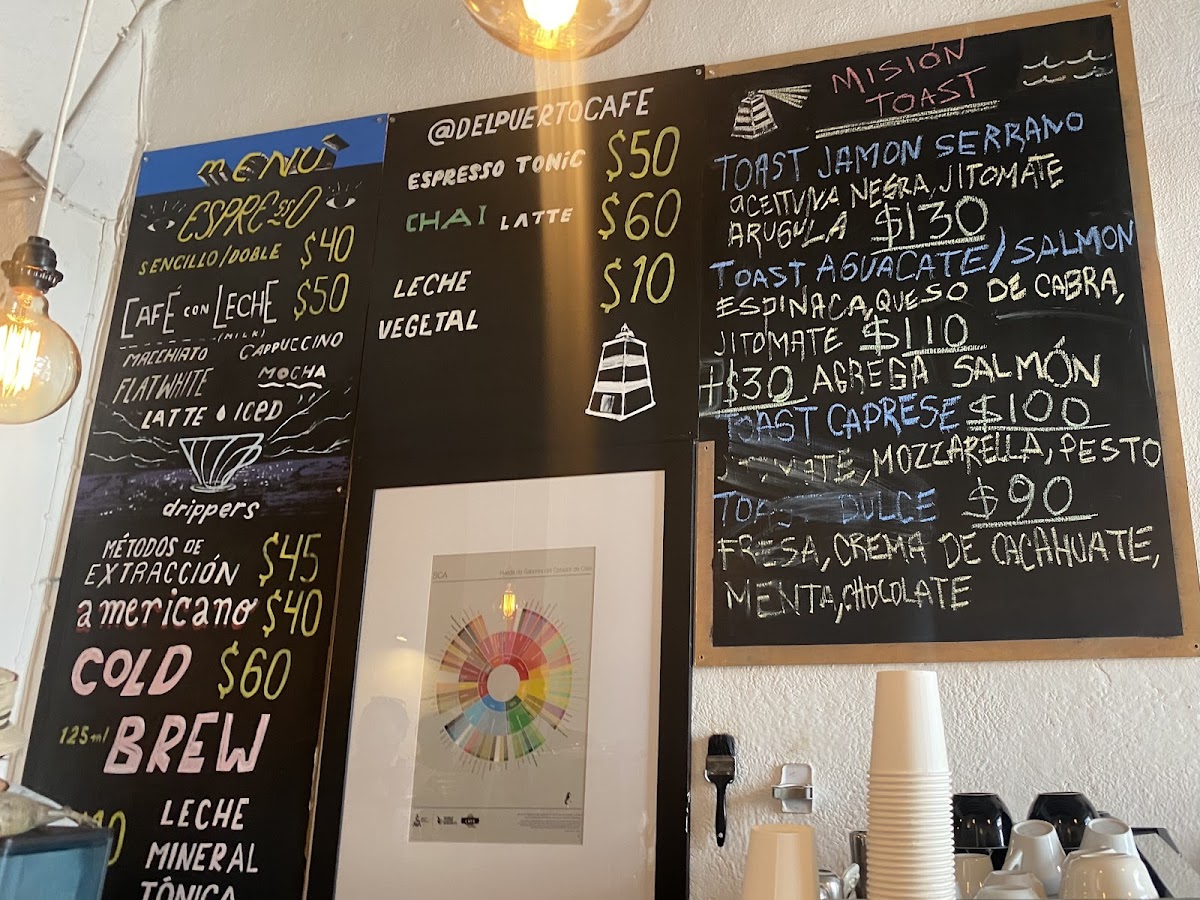 MENU
ESPRESSO
SENCILLO/DOBLE $40
CAFÉ CON LECHE $50
(MILK)
MACCHIATO CAPPUCCINO
FLATWHITE MOCHA
LATTE ICED
drippers
MÉTODOS DE
EXTRACCIÓN $45
americano $40
COLD $60
125ml BREW
LECHE
MINERAL
TÓNICA
@DELPUERTOCAFE
ESPRESSO TONIC $50
CHAI LATTE $60
LECHE $10
VEGETAL
SCA
MISIÓN
TOAST
TOAST JAMON SERRANO
ACEITUVA NEGRA, JITOMATE
ARUGULA $130
TOAST AGUACATE/SALMON
ESPINACA, QUESO DE CABRA,
JITOMATE $110
+$30 AGREGA SALMÓN
TOAST CAPRESE $100
JITOMATE, MOZZARELLA, PESTO
TOAST DULCE $90
FRESA, CREMA DE CACAHUATE,
MENTA, CHOCOLATE